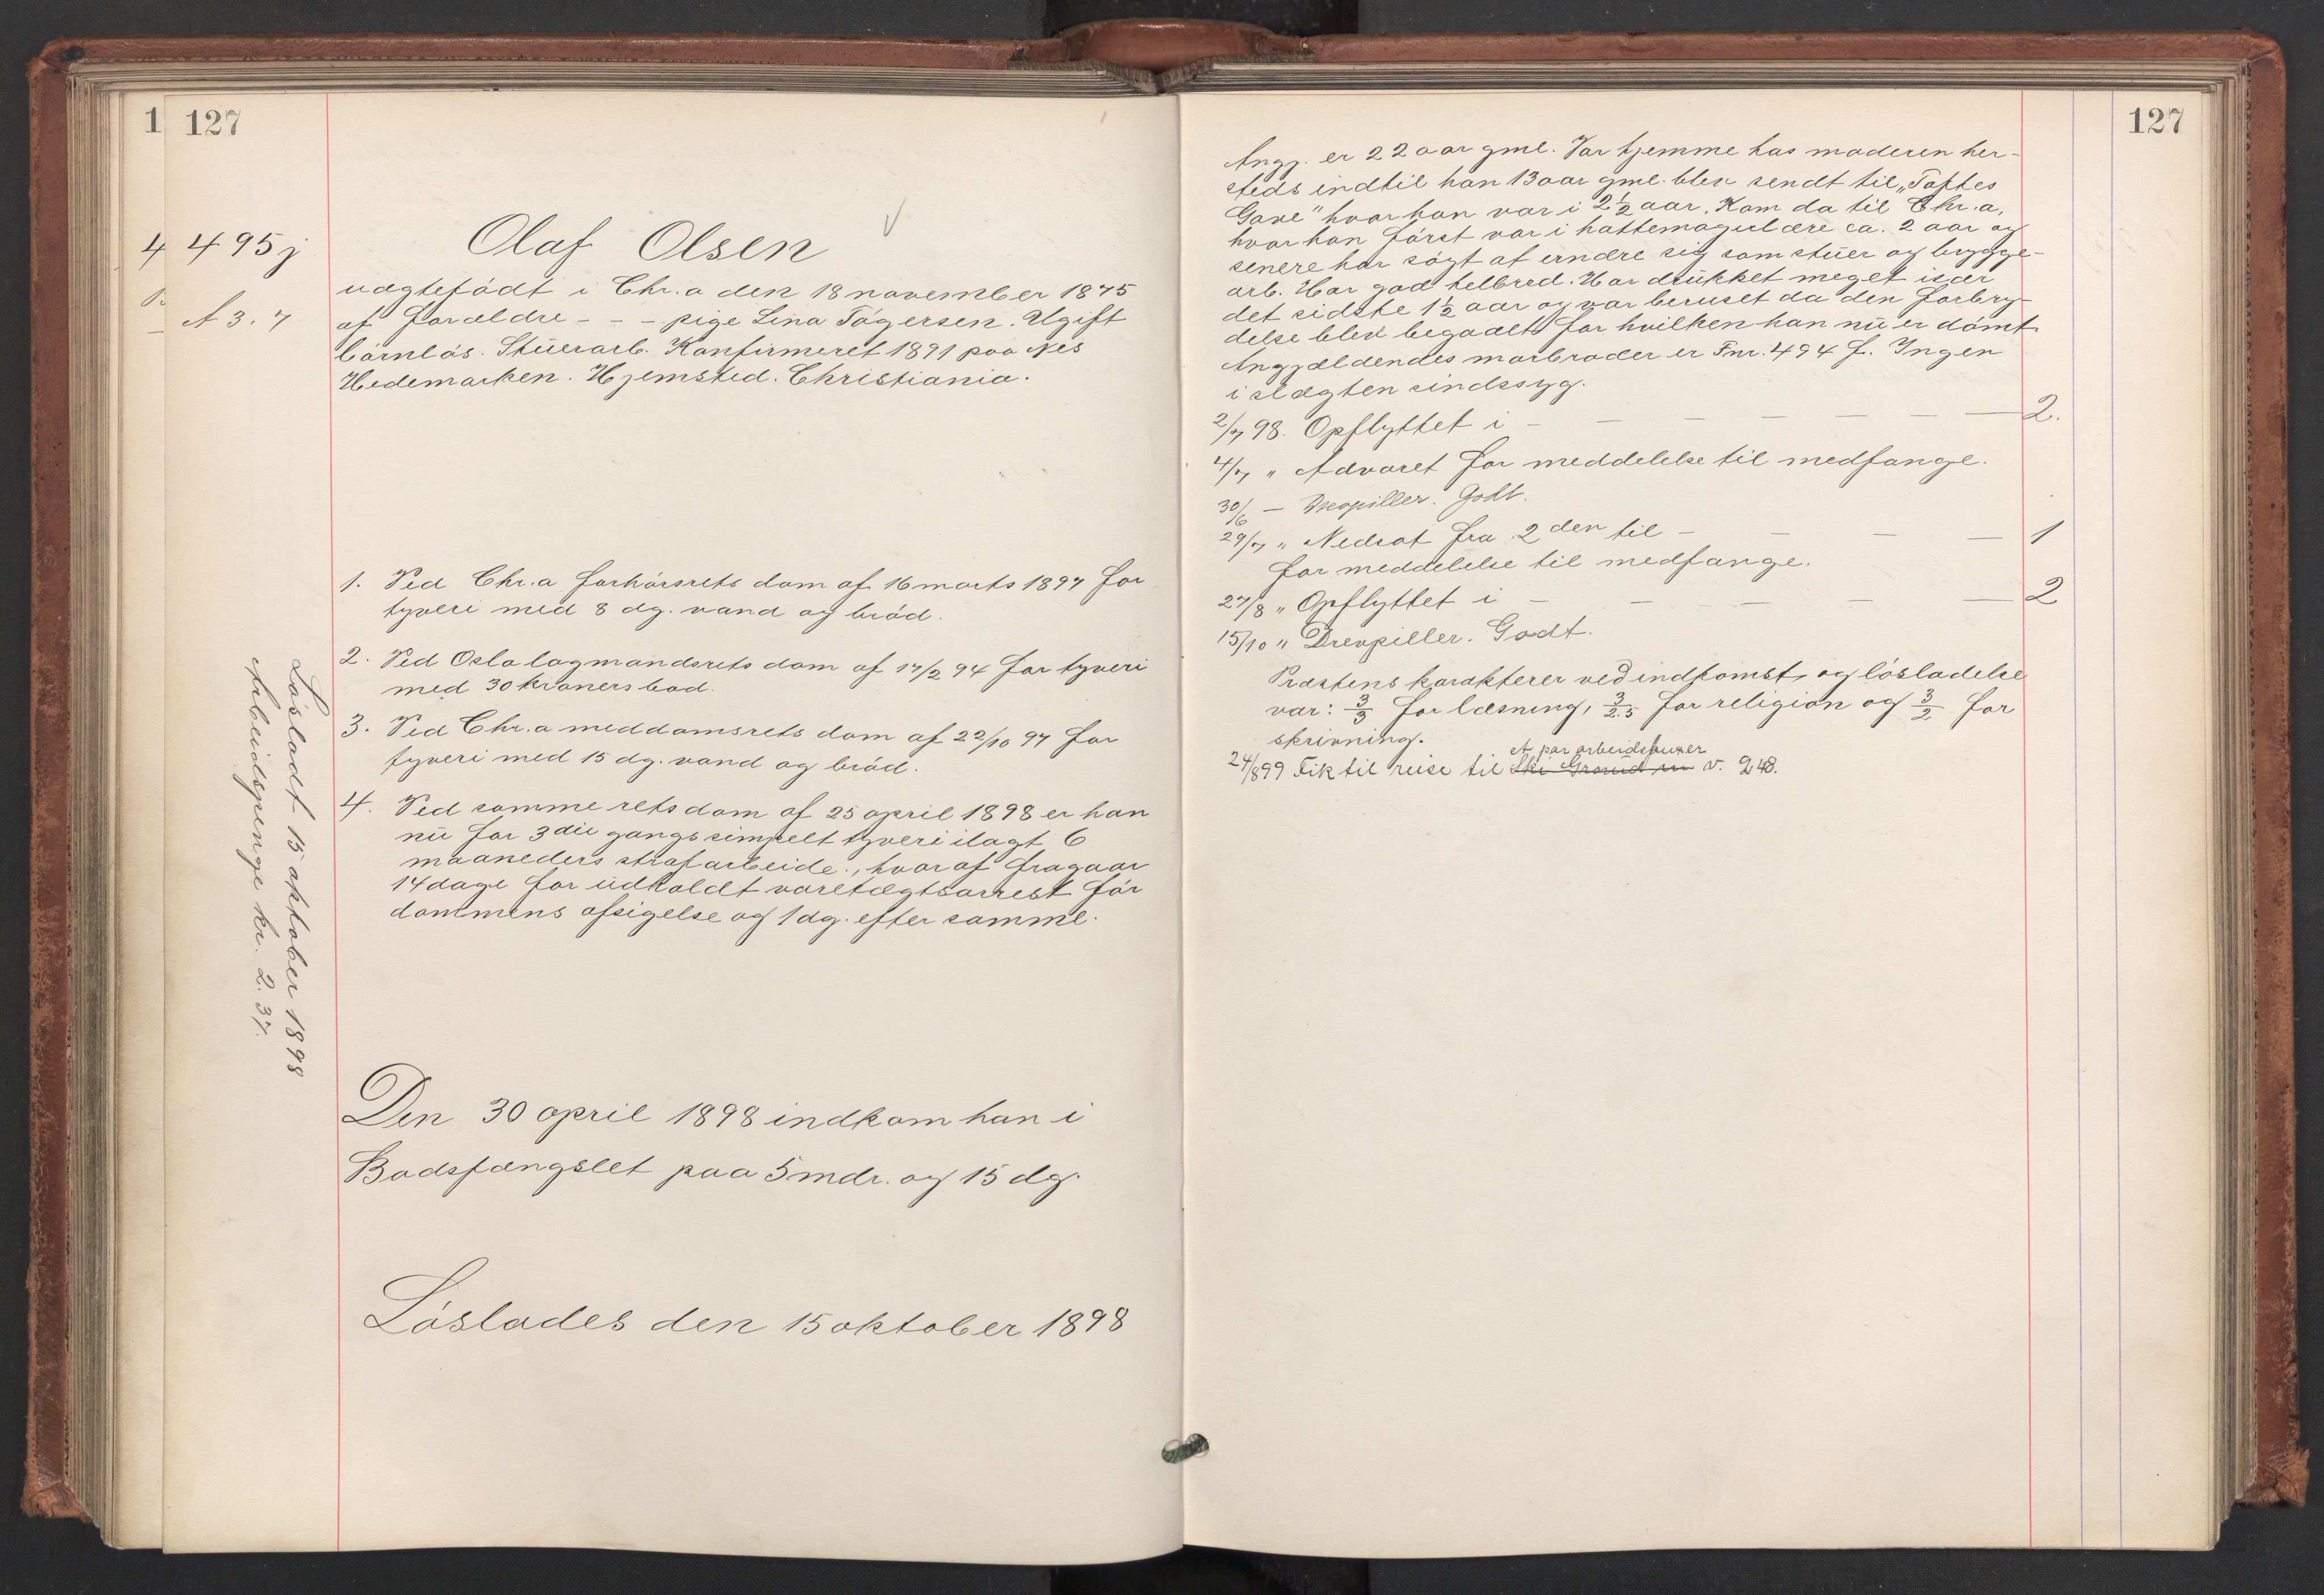 1 127
4 495j
Olaf Olsen
A 3. 7
uægtefödt i Chr.a den 18 november 1875
af forældre - - - pige Lina Tögersen. Ugift
börnlös. Stüerarb. Konfirmeret 1891 paa Nes
Hedemarken. Hjemsted. Christiania.
1. Ved Chr.a forhörsrets dom af 16 marts 1897 for
tyveri med 8 dg. vand og bröd.
2. Ved Oslo lagmandsrets dom af 17/2 94 for tyveri
med 30 kroners bod.
3. Ved Chr.a meddomsrets dom af 22/10 97 for
tyveri med 15 dg. vand og bröd.
4. Ved samme rets dom af 25 april 1898 er han
nü for 3die gangs simpelt tyveri ilagt 6
maaneders strafarbeide, hvoraf fragaar
14 dage for üdholdt varetægtsarrest för
dommens afsigelse og 1 dg. efter samme.
Lösladt 15 oktober 1898
Arbeidspenge kr. 2.37.
Den 30 april 1898 indkom han i
Bodsfængslet paa 5 mdr. og 15 dg.
Löslades den 15 oktober 1898
127
Angj. er 22 aar gml. Var hjemme hos moderen her-
steds indtil han 13 aar gml. blev sendt til „Toftes
Gave" hvor han var i 2½ aar. Kom da til Chr.a,
hvor han först var i hattemagerlære ca. 2 aar og
senere har sögt at ernære sig som stüer og brygge-
arb. Har god helbred. Har drükket meget især
det sidste 1½ aar og var beruset da den forbry-
delse blev begaaet for hvilken han nü er dömt
Angjældendes morbroder er Fnr. 494 f. Ingen
i slægten sindssyg.
2/7 98. Opflyttet i - - - - - - 2.
4/7 " Advaret for meddelelse til medfange.
30/6 - Godt.
29/7 " Nedsat fra 2den til - - - - 1
for meddelelse til medfange.
27/8 " Opflyttet i - - - - - 2
15/10 " Drevpiller. Godt.
Præstens karakterer ved indkomst og lösladelse
var: 3/3 for læsning, 3/2.5 for religion og 3/2 for
skrivning.
Et par arbeidsbuxer
24/8 99 Fik til reise til Ski v. 248.